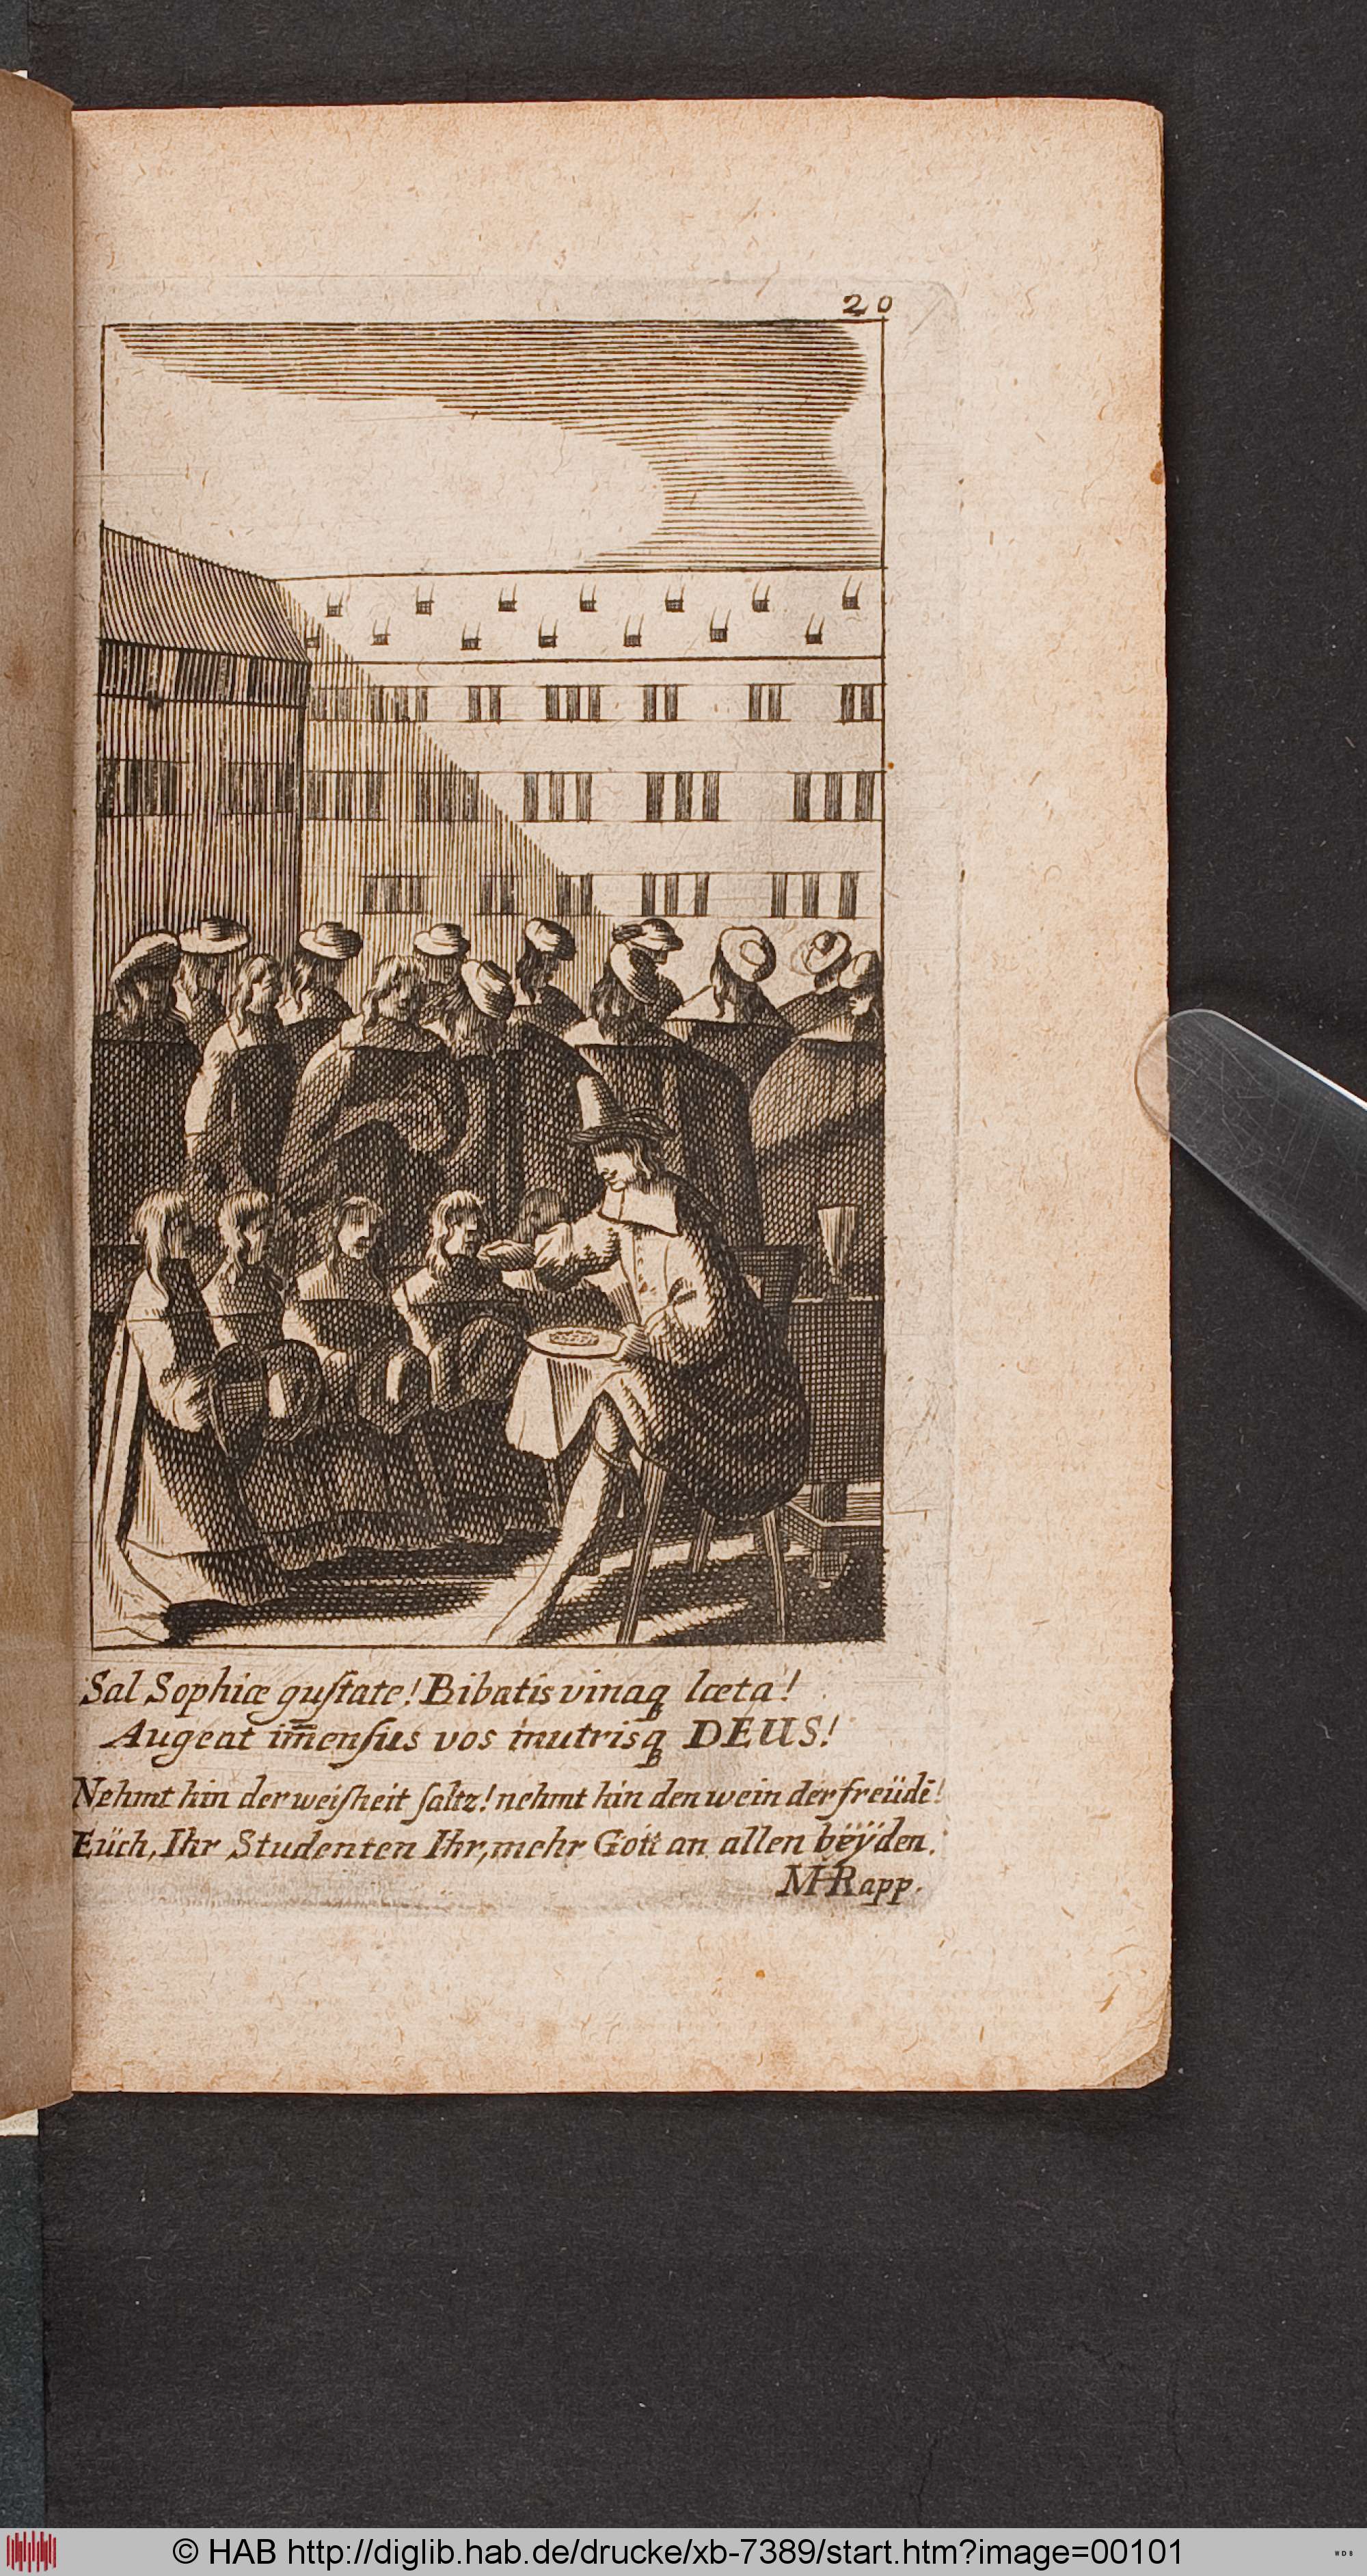 20
Sal Sophiæ guſtate! Bibatis vinaq́ læta!
Augeat im̄enſus vos in utrisq́ DEUS!
Nehmt hin der weiſheit ſaltz! nehmt hin den wein der freüdē!
Eüch, Ihr Studenten Ihr, mehr Gott an allen beÿden.
M Rapp.
© HAB http://diglib.hab.de/drucke/xb-7389/start.htm?image=00101